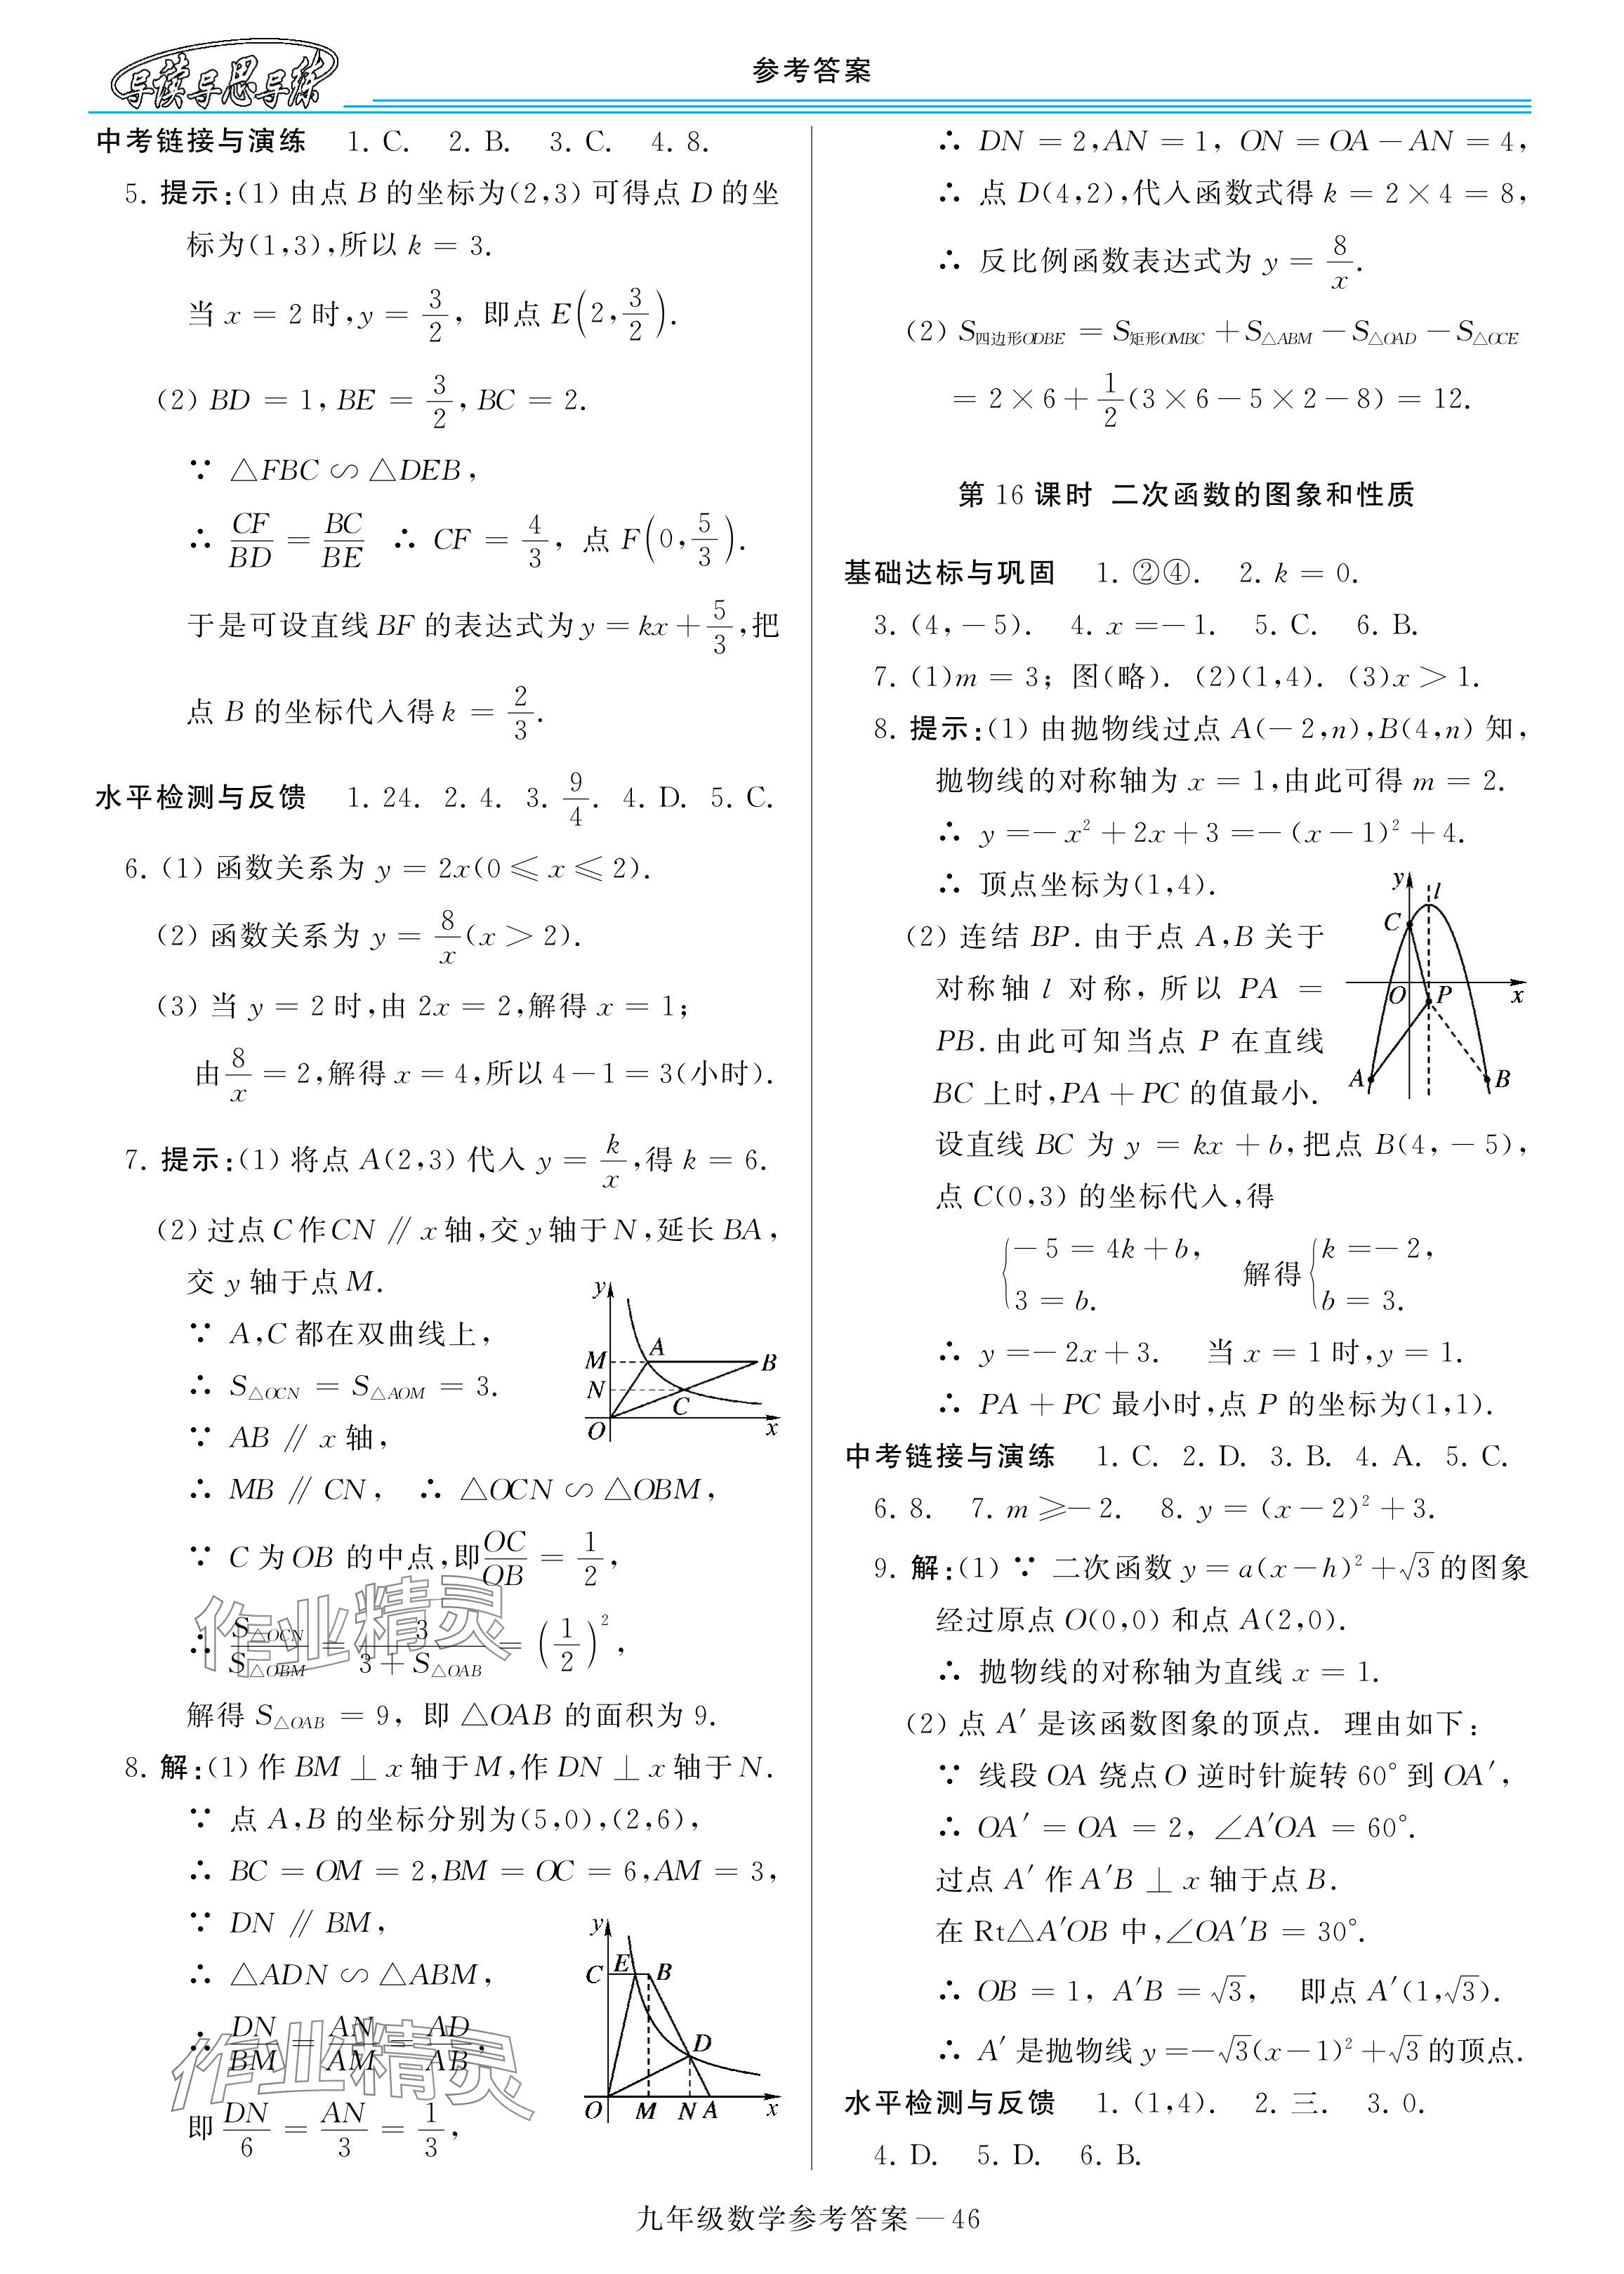 导读导思导练
参考答案
中考链接与演练 1. C. 2. B. 3. C. 4. 8.
5. 提示:(1) 由点 B 的坐标为(2,3) 可得点 D 的坐
标为(1,3),所以 k = 3.
当 x = 2 时,y = 3/2, 即点 E(2,3/2).
(2) BD = 1, BE = 3/2, BC = 2.
∵ △FBC ∽ △DEB,
∴ CF/BD = BC/BE ∴ CF = 4/3, 点 F(0,5/3).
于是可设直线 BF 的表达式为 y = kx + 5/3,把
点 B 的坐标代入得 k = 2/3.
水平检测与反馈 1. 24. 2. 4. 3. 9/4. 4. D. 5. C.
6. (1) 函数关系为 y = 2x(0 ≤ x ≤ 2).
(2) 函数关系为 y = 8/x(x > 2).
(3) 当 y = 2 时,由 2x = 2,解得 x = 1;
由 8/x = 2,解得 x = 4,所以 4 − 1 = 3(小时).
7. 提示:(1) 将点 A(2,3) 代入 y = k/x,得 k = 6.
(2) 过点 C 作 CN ∥ x 轴,交 y 轴于 N,延长 BA,
交 y 轴于点 M.
∵ A,C 都在双曲线上,
∴ S△OCN = S△AOM = 3.
∵ AB ∥ x 轴,
∴ MB ∥ CN, ∴ △OCN ∽ △OBM,
∵ C 为 OB 的中点,即 OC/OB = 1/2,
∴ S△OCN/S△OBM = 3/(3 + S△OAB) = (1/2)²,
解得 S△OAB = 9, 即 △OAB 的面积为 9.
y
M
A
B
N
C
O
x
8. 解:(1) 作 BM ⊥ x 轴于 M,作 DN ⊥ x 轴于 N.
∵ 点 A,B 的坐标分别为(5,0),(2,6),
∴ BC = OM = 2,BM = OC = 6,AM = 3,
∵ DN ∥ BM,
∴ △ADN ∽ △ABM,
∴ DN/BM = AN/AM = AD/AB,
即 DN/6 = AN/3 = 1/3,
y
C
E
B
D
O
M
N
A
x
作业精灵
作业精灵
∴ DN = 2,AN = 1, ON = OA − AN = 4,
∴ 点 D(4,2),代入函数式得 k = 2 × 4 = 8,
∴ 反比例函数表达式为 y = 8/x.
(2) S四边形ODBE = S矩形OMBC + S△ABM − S△OAD − S△OCE
= 2 × 6 + 1/2(3 × 6 − 5 × 2 − 8) = 12.
第 16 课时 二次函数的图象和性质
基础达标与巩固 1. ②④. 2. k = 0.
3. (4, − 5). 4. x = − 1. 5. C. 6. B.
7. (1)m = 3; 图(略). (2)(1,4). (3)x > 1.
8. 提示:(1) 由抛物线过点 A(− 2,n),B(4,n) 知,
抛物线的对称轴为 x = 1,由此可得 m = 2.
∴ y = − x² + 2x + 3 = − (x − 1)² + 4.
∴ 顶点坐标为(1,4).
(2) 连结 BP. 由于点 A,B 关于
对称轴 l 对称, 所以 PA =
PB. 由此可知当点 P 在直线
BC 上时,PA + PC 的值最小.
y
l
C
O
P
x
A
B
设直线 BC 为 y = kx + b,把点 B(4, − 5),
点 C(0,3) 的坐标代入,得
{− 5 = 4k + b, 解得 {k = − 2,
3 = b. b = 3.
∴ y = − 2x + 3. 当 x = 1 时,y = 1.
∴ PA + PC 最小时,点 P 的坐标为(1,1).
中考链接与演练 1. C. 2. D. 3. B. 4. A. 5. C.
6. 8. 7. m ≥ − 2. 8. y = (x − 2)² + 3.
9. 解:(1) ∵ 二次函数 y = a(x − h)² + √3 的图象
经过原点 O(0,0) 和点 A(2,0).
∴ 抛物线的对称轴为直线 x = 1.
(2) 点 A′ 是该函数图象的顶点. 理由如下:
∵ 线段 OA 绕点 O 逆时针旋转 60° 到 OA′,
∴ OA′ = OA = 2, ∠A′OA = 60°.
过点 A′ 作 A′B ⊥ x 轴于点 B.
在 Rt△A′OB 中,∠OA′B = 30°.
∴ OB = 1, A′B = √3, 即点 A′(1,√3).
∴ A′ 是抛物线 y = − √3(x − 1)² + √3 的顶点.
水平检测与反馈 1. (1,4). 2. 三. 3. 0.
4. D. 5. D. 6. B.
九年级数学参考答案 — 46